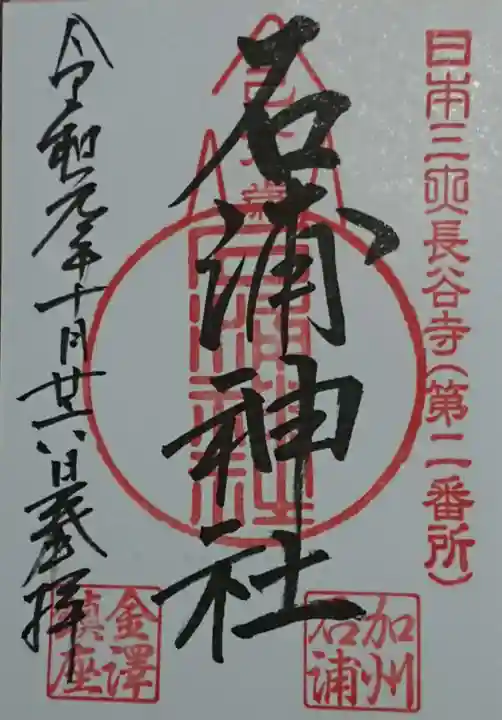 日本三大長谷寺（第二番所）
石浦神社
令和元年十月廿六日奉拝
加州
石浦
金澤
鎮座